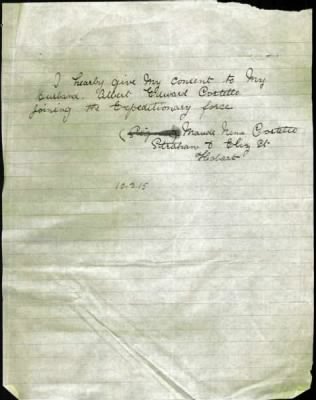 I hearby give my consent to my
husband. Albert Edward Costello
joining the Expeditionary force
Maude Nina Costello
Strahan & Eliz St
Hobart
12.2.15